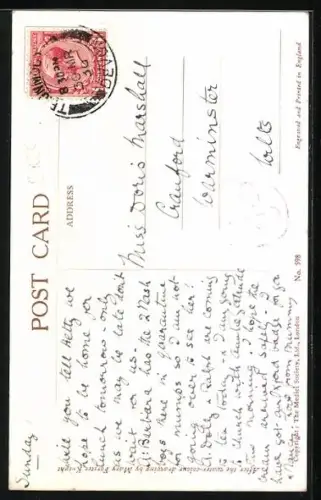 POST CARD
ADDRESS
Sunday
Will you tell Hetty we
hope to be home for
lunch tomorrow - only
as we may be late don't
wait for us.
Barbara has the 2 Nash
boys here in quarantine
for mumps so I am not
going over to see her!
& Ralph are coming
to tea today & I am going
to church with
this morning. I hope the
arrived safely. I
have got an Oxford badge for you
love from Mummy
Miss Doris Marshall
Cranford
Warminster
Wilts
TEIGNMOUTH
DEVON
8 30 PM
30
Engraved and Printed in England
After the water-colour drawing by Mary Forster Knight
Copyright; The Medici Society, Ltd., London
No. 598